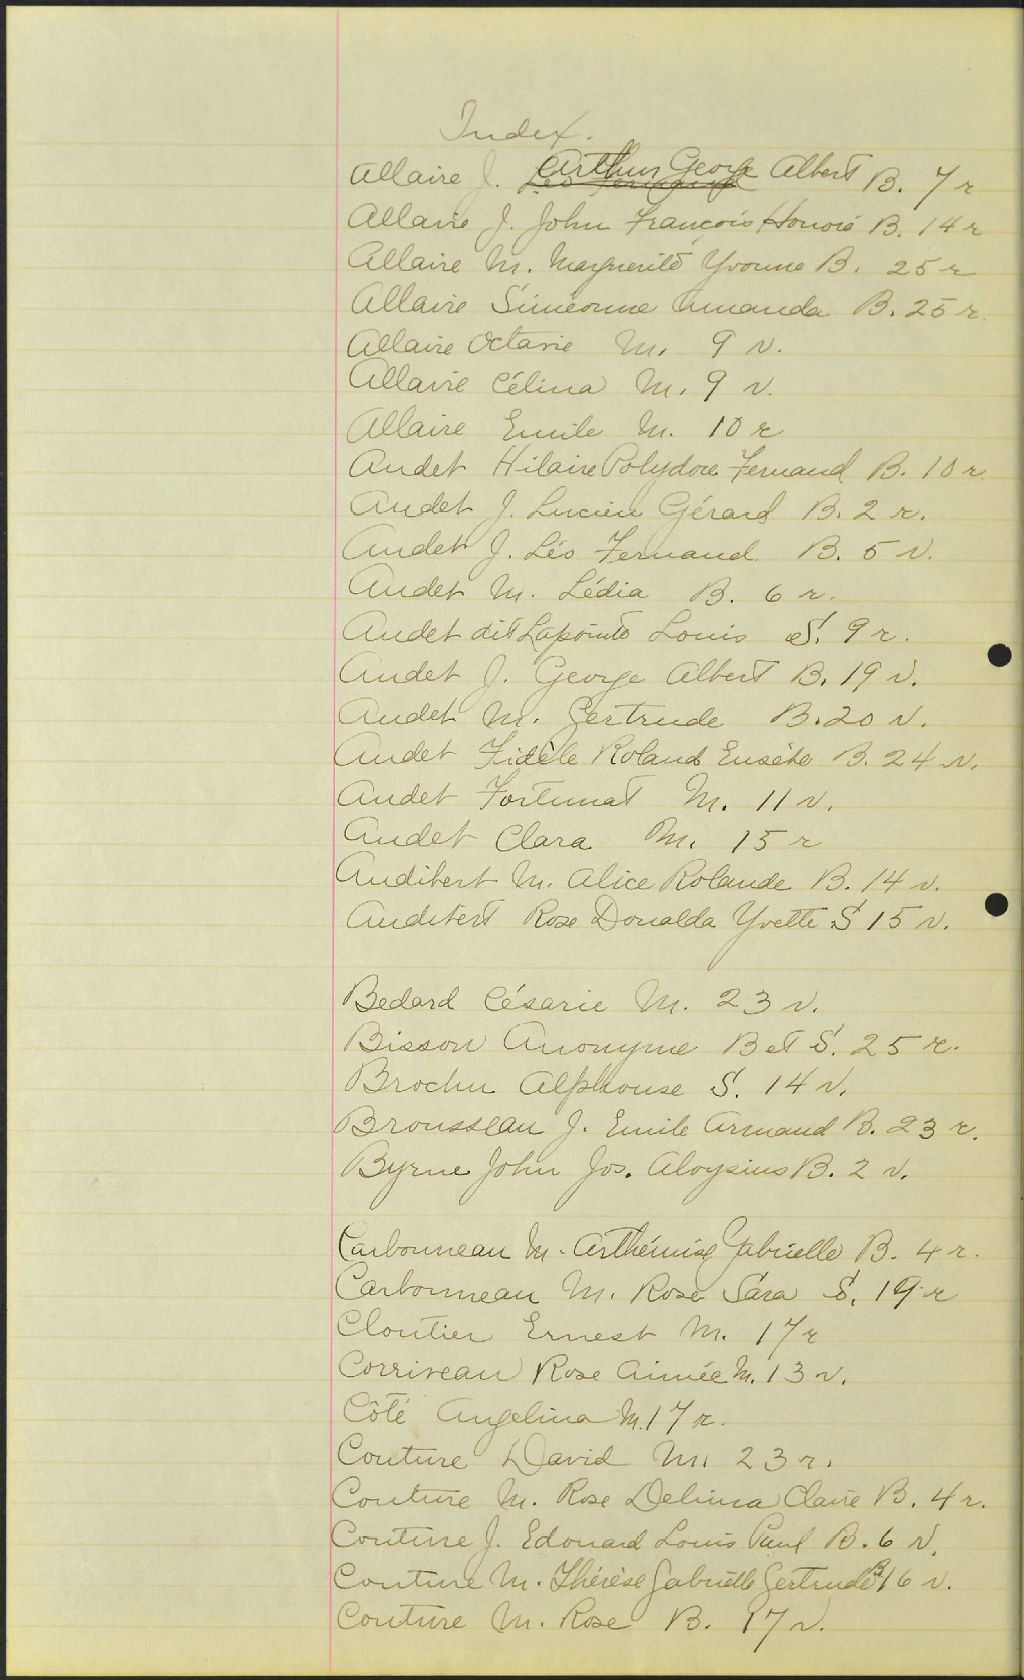 Index.
Allaire J. Arthur George Albert B. 7 r
Allaire J. John François Honoré B. 14 r
Allaire M. Marguerite Yvonne B. 25 r
Allaire Siméonne Amanda B. 25 r.
Allaire Octavie M. 9 v.
Allaire Célina M. 9 v.
Allaire Emile M. 10 r
Audet Hilaire Polydore Fernand B. 10 r.
Audet J. Lucien Gérard B. 2 r.
Audet J. Léo Fernand B. 5 v.
Audet M. Lédia B. 6 r.
Audet dit Lapointe Louis S. 9 r.
Audet J. George Albert B. 19 v.
Audet M. Gertrude B. 20 v.
Audet Fidèle Roland Eusèbe B. 24 v.
Audet Fortunat M. 11 v.
Audet Clara M. 15 r
Audibert M. Alice Rolande B. 14 v.
Audibert Rose Donalda Yvette S 15 v.
Bedard Césarie M. 23 v.
Bisson Anonyme B et S. 25 r.
Brochu Alphonse S. 14 v.
Brousseau J. Emile Armand B. 23 r.
Byrne John Jos. Aloysius B. 2 v.
Carbonneau M. Arthémise Gabrielle B. 4 r.
Carbonneau M. Rose Sara S. 19 r
Cloutier Ernest M. 17 r
Corriveau Rose Aimée M. 13 v.
Côté Angelina M. 17 r.
Couture David M. 23 r.
Couture M. Rose Delima Claire B. 4 r.
Couture J. Edouard Louis Paul B. 6 v.
Couture M. Thérèse Gabrielle Gertrude B 16 v.
Couture M. Rose B. 17 v.